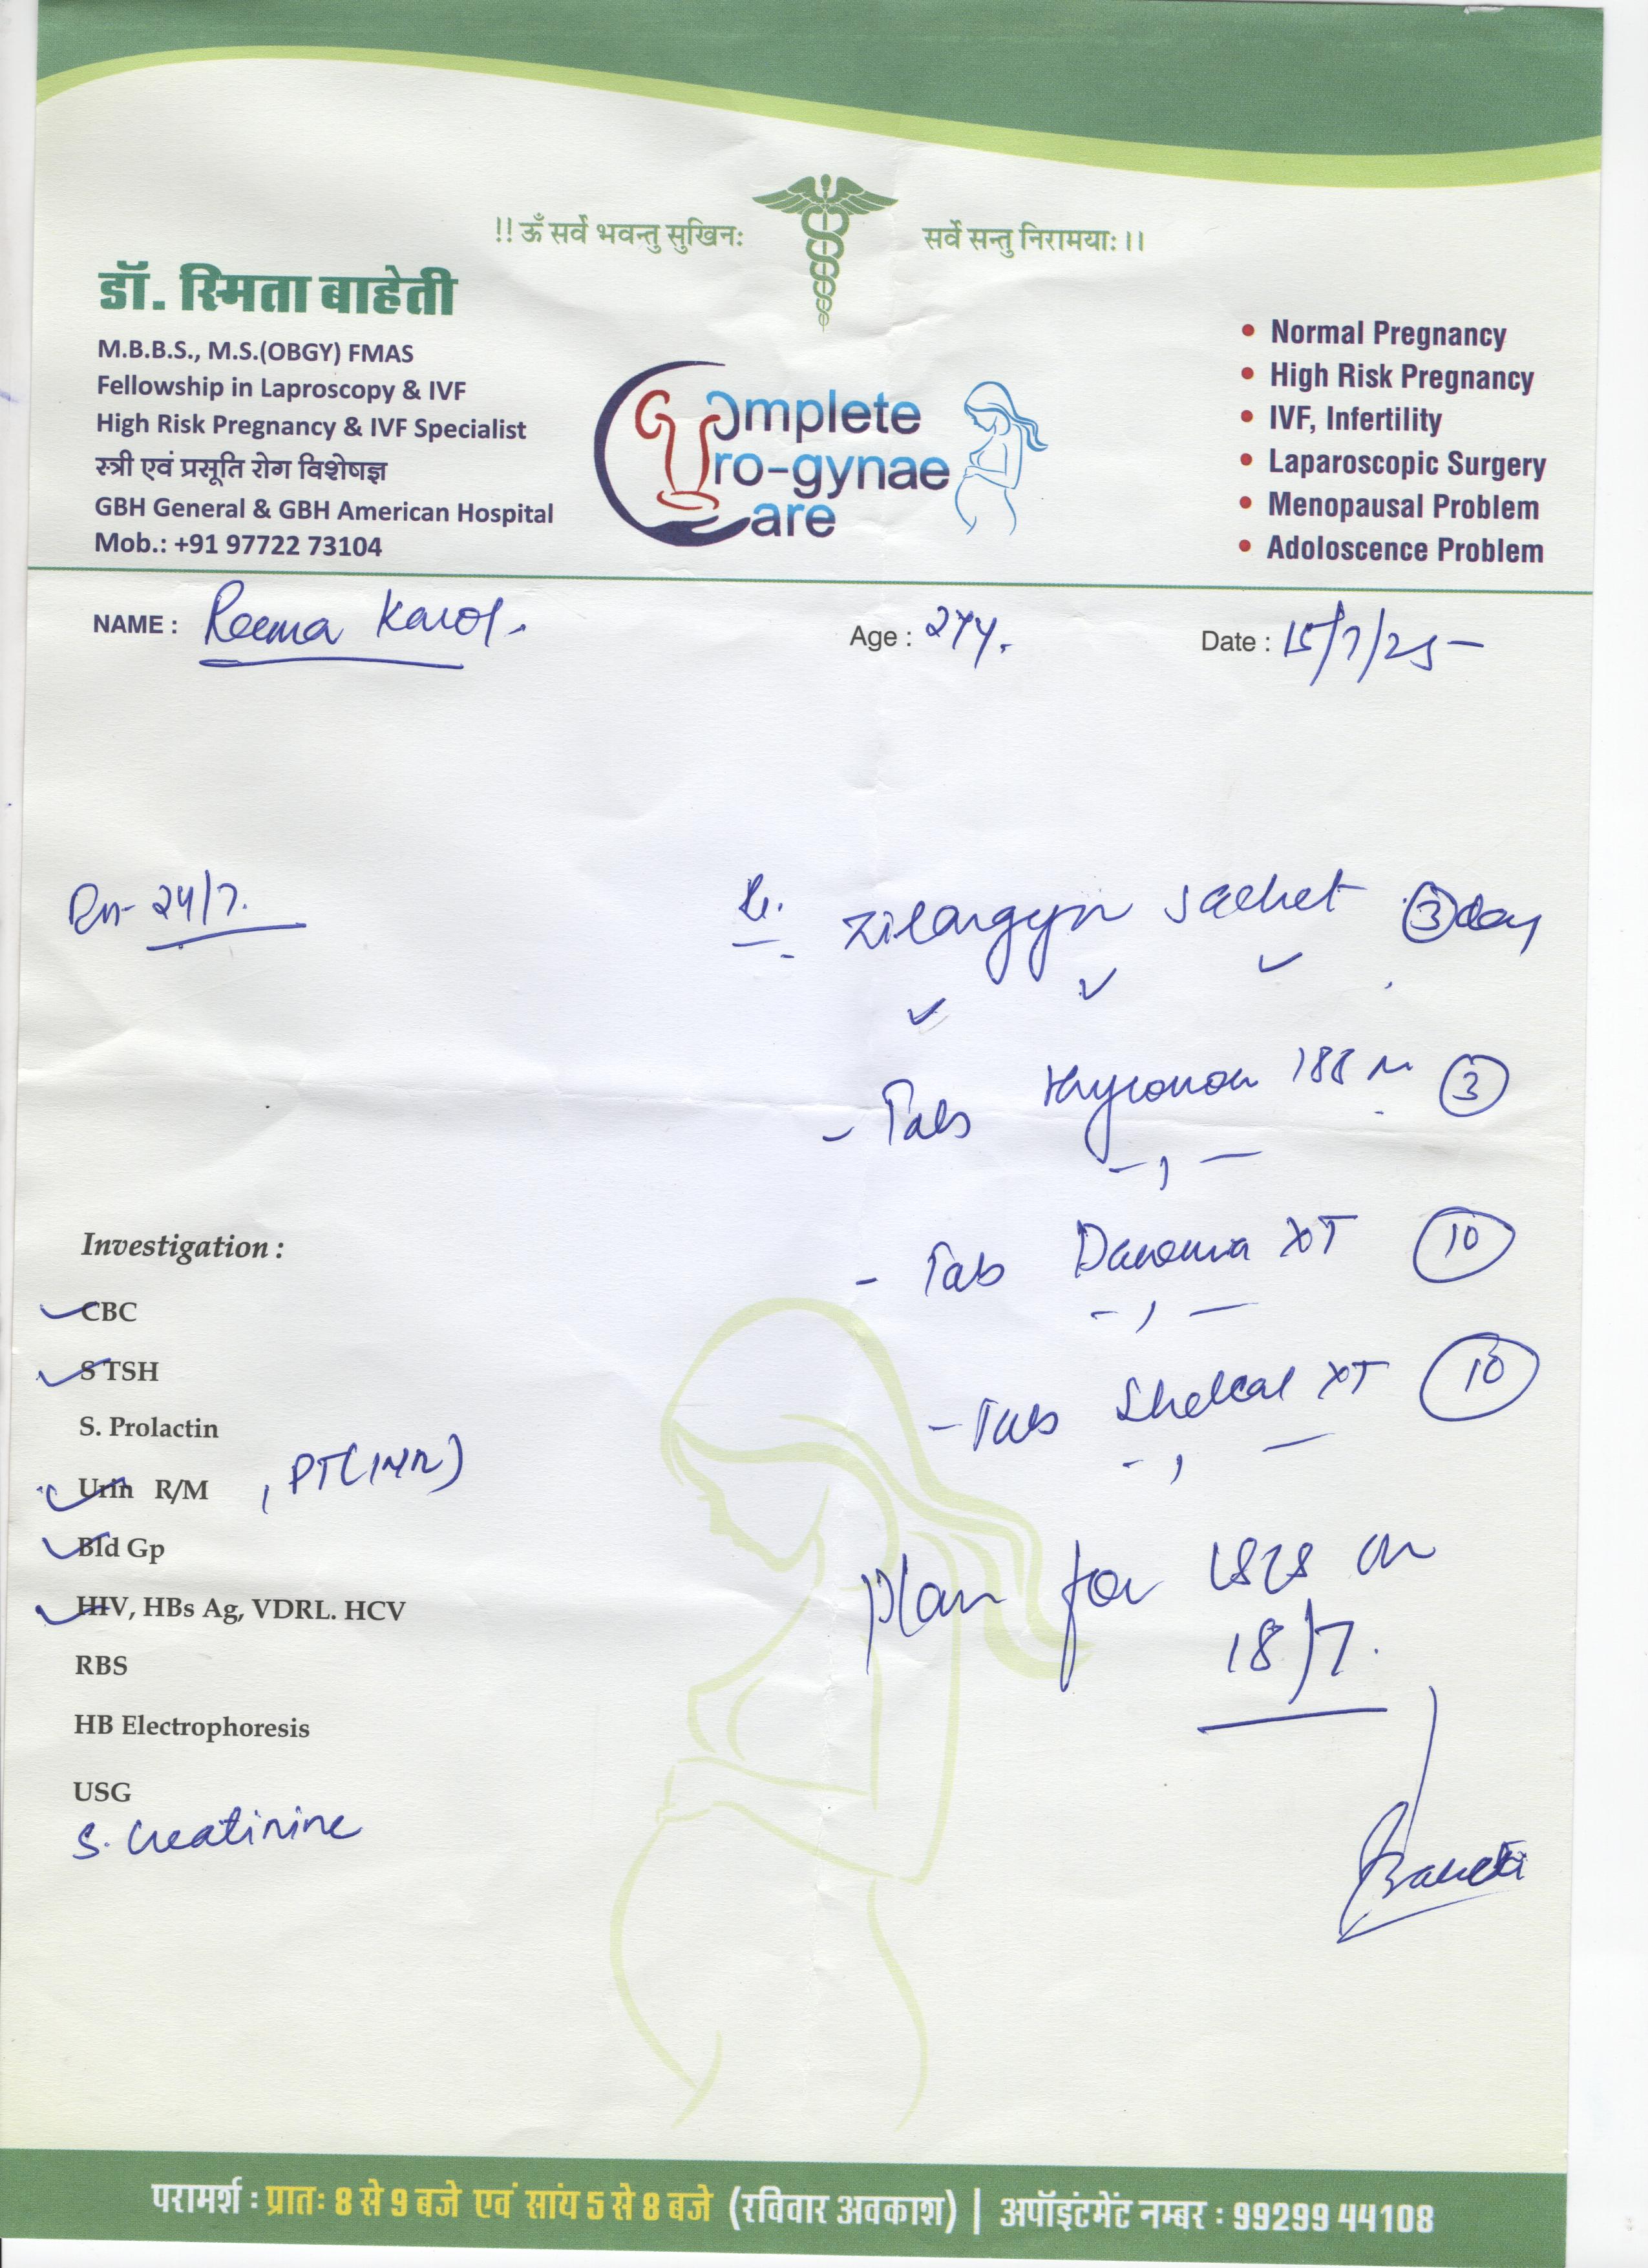 !! ॐ सर्वे भवन्तु सुखिनः सर्वे सन्तु निरामयाः।।
डॉ. स्मिता बाहेती
M.B.B.S., M.S.(OBGY) FMAS
Fellowship in Laproscopy & IVF
High Risk Pregnancy & IVF Specialist
स्त्री एवं प्रसूति रोग विशेषज्ञ
GBH General & GBH American Hospital
Mob.: +91 97722 73104
Complete
Uro-gynae
Care
• Normal Pregnancy
• High Risk Pregnancy
• IVF, Infertility
• Laparoscopic Surgery
• Menopausal Problem
• Adoloscence Problem
NAME : Reema
Age : 27y.
Date : 15/7/25
24/7.
sachet 3 day
- Tab 3
- Tab XT 10
- Tab Shelcal XT 10
plan for LSCS on
18/7.
Investigation :
CBC
S TSH
S. Prolactin
Urin R/M , PT(INR)
Bld Gp
HIV, HBs Ag, VDRL. HCV
RBS
HB Electrophoresis
USG
S. Creatinine
परामर्श : प्रातः 8 से 9 बजे एवं सांय 5 से 8 बजे (रविवार अवकाश) | अपॉइंटमेंट नम्बर : 99299 44108